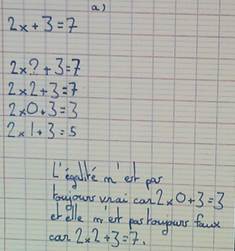 a)
2x + 3 = 7
2x ? + 3 = 7
2 x 2 + 3 = 7
2 x 0 + 3 = 3
2 x 1 + 3 = 5
L'égalité n'est pas
toujours vrai car 2 x 0 + 3 = 3
et elle n'est pas toujours faux
car 2 x 2 + 3 = 7.